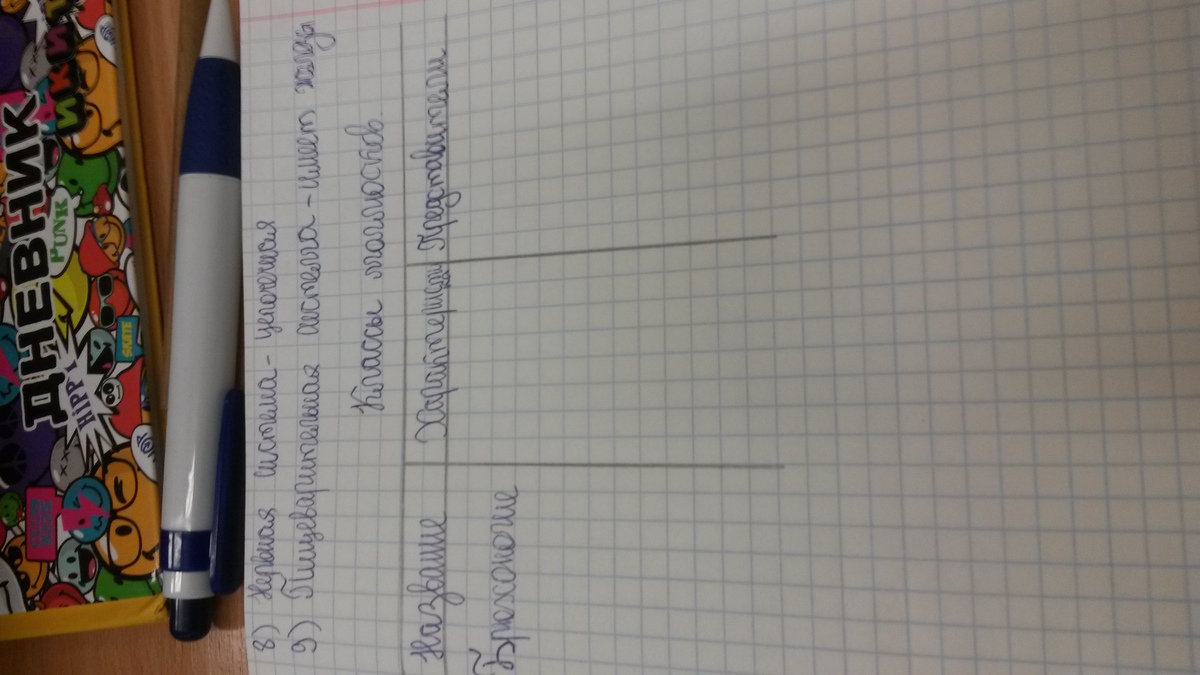 ДНЕВНИК
PUNK
HiPPi
SKATE
8) Нервная система - цепочечная
9) Пищеварительная система - имеет железы
Классы моллюсков.
Название Характеристи Представители
Брюхоногие